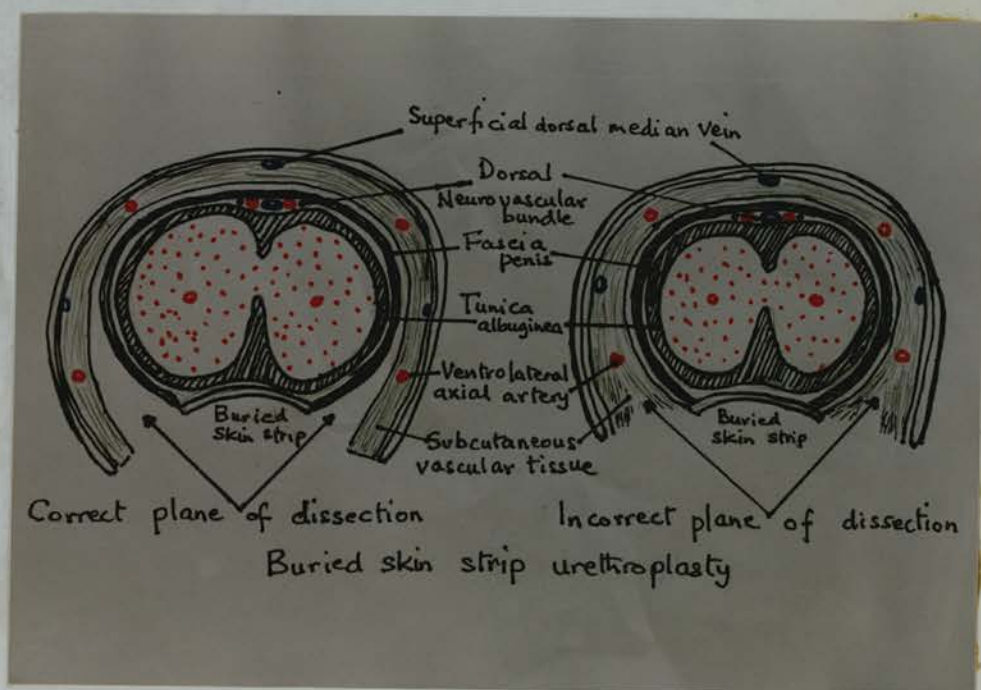 Superficial dorsal median vein
Dorsal
Neurovascular
bundle
Fascia
penis
Tunica
albuginea
Ventrolateral
axial artery
Subcutaneous
vascular tissue
Buried
skin strip
Buried
skin strip
Correct plane of dissection
Incorrect plane of dissection
Buried skin strip urethroplasty